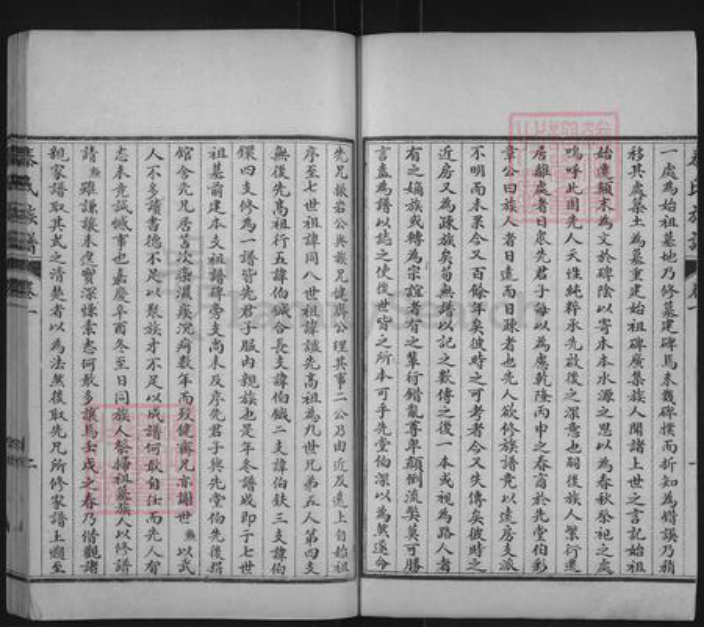 一處為始祖墓地乃修墓建碑焉未幾碑撲而折知為錯誤乃稍
移其處築土為墓重建始祖碑廣集族人聞諸上世之言記始祖
始遷顛末為文於碑陰以寄木本水源之思以為春秋祭祀之處
嗚呼此固先人天性純粹承先啟後之深意也嗣後族人繁衍遷
居離處者日衆先君子每以為慮乾隆丙申之春商於先堂伯彩
章公曰族人者日遠而日疎者也先人欲修族譜竟以遠房支派
不明而未果今又百餘年矣彼時之可考者今又失傳矣彼時之
近房又為疎族矣苟無譜以記之數傳之後一本或視為路人者
有之嫡族或轉為宗誼者有之輩行錯亂尊卑顛倒流弊莫可勝
言盍為譜以誌之使後世皆之所本可乎先堂伯深以為然遂命
先兄撤岩公與族兄健齋公理其事二公乃由近及遠上自始祖
序至七世祖諱同八世祖諱諡先高祖為九世兄弟五人第四支
無後先高祖行五諱伯鍼合長支諱伯鉞二支諱伯鈇三支諱伯
鐶四支修為一譜皆先君子服內親族也是年冬譜成即于七世
祖墓前建本支祖譜碑旁支尚未及序先君子與先堂伯先後捐
館舍先兄居莒次染濕疾沉疴數年而歿健齋兄亦謝世 以武
人不多讀書德不足以聚族才不足以成譜何敢自任而先人有
志未竟誠憾事也嘉慶辛酉冬至日同族人祭掃祖墓族人以修譜
請 雖謙讓未遑實深慊素志何敢多讓焉壬戌之春乃偕觀諸
親家譜取其式之清楚者以為法然後取先兄所修家譜上溯至
秦氏族譜 卷一 二